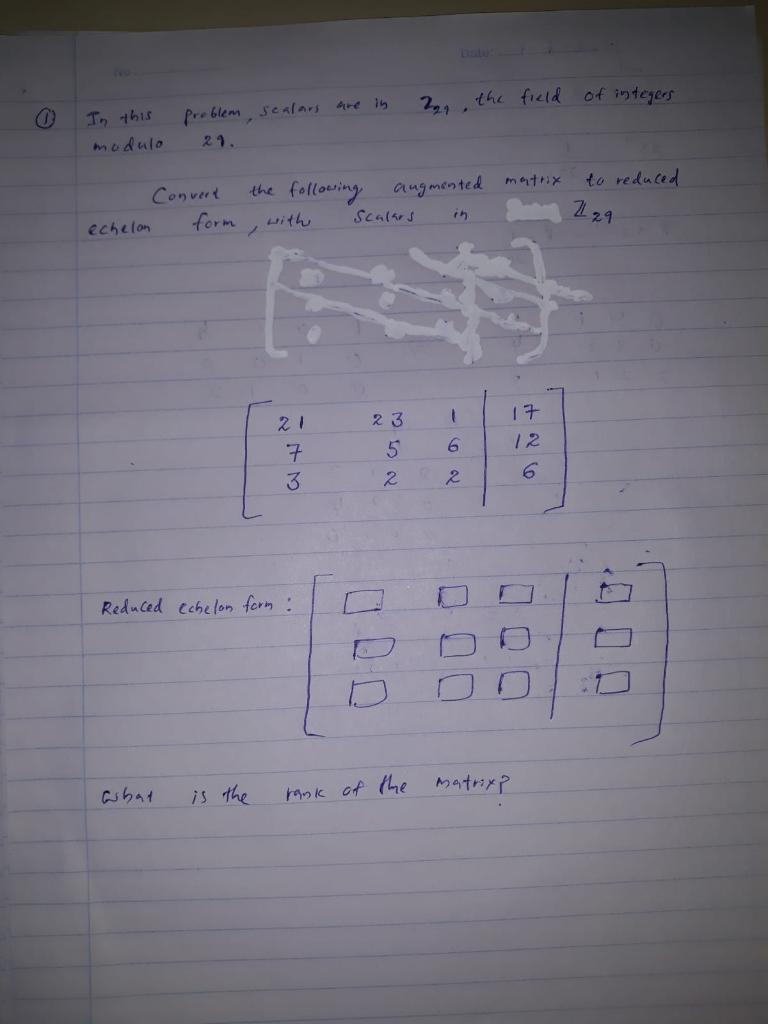 No.
Date
① In this problem, scalars are in Z29, the field of integers
modulo 29.
Convert the following augmented matrix to reduced
echelon form, with scalars in Z29
21 23 1 17
7 5 6 12
3 2 2 6
Reduced echelon form :
What is the rank of the matrix?